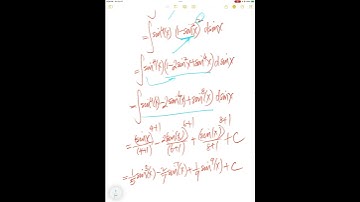 =∫sin⁴(x) (1-sin²x)² dsinx
=∫sin⁴(x)(1-2sin²x+sin⁴x)dsinx
=∫sin⁴(x)-2sin⁶(x)+sin⁸(x) dsinx
=sin(x)⁴⁺¹/(4+1) - 2sin(x)⁶⁺¹/(6+1) + sin(x)⁸⁺¹/8+1 + C
=1/5 sin⁵(x)-2/7 sin⁷(x)+1/9 sin⁹(x)+C